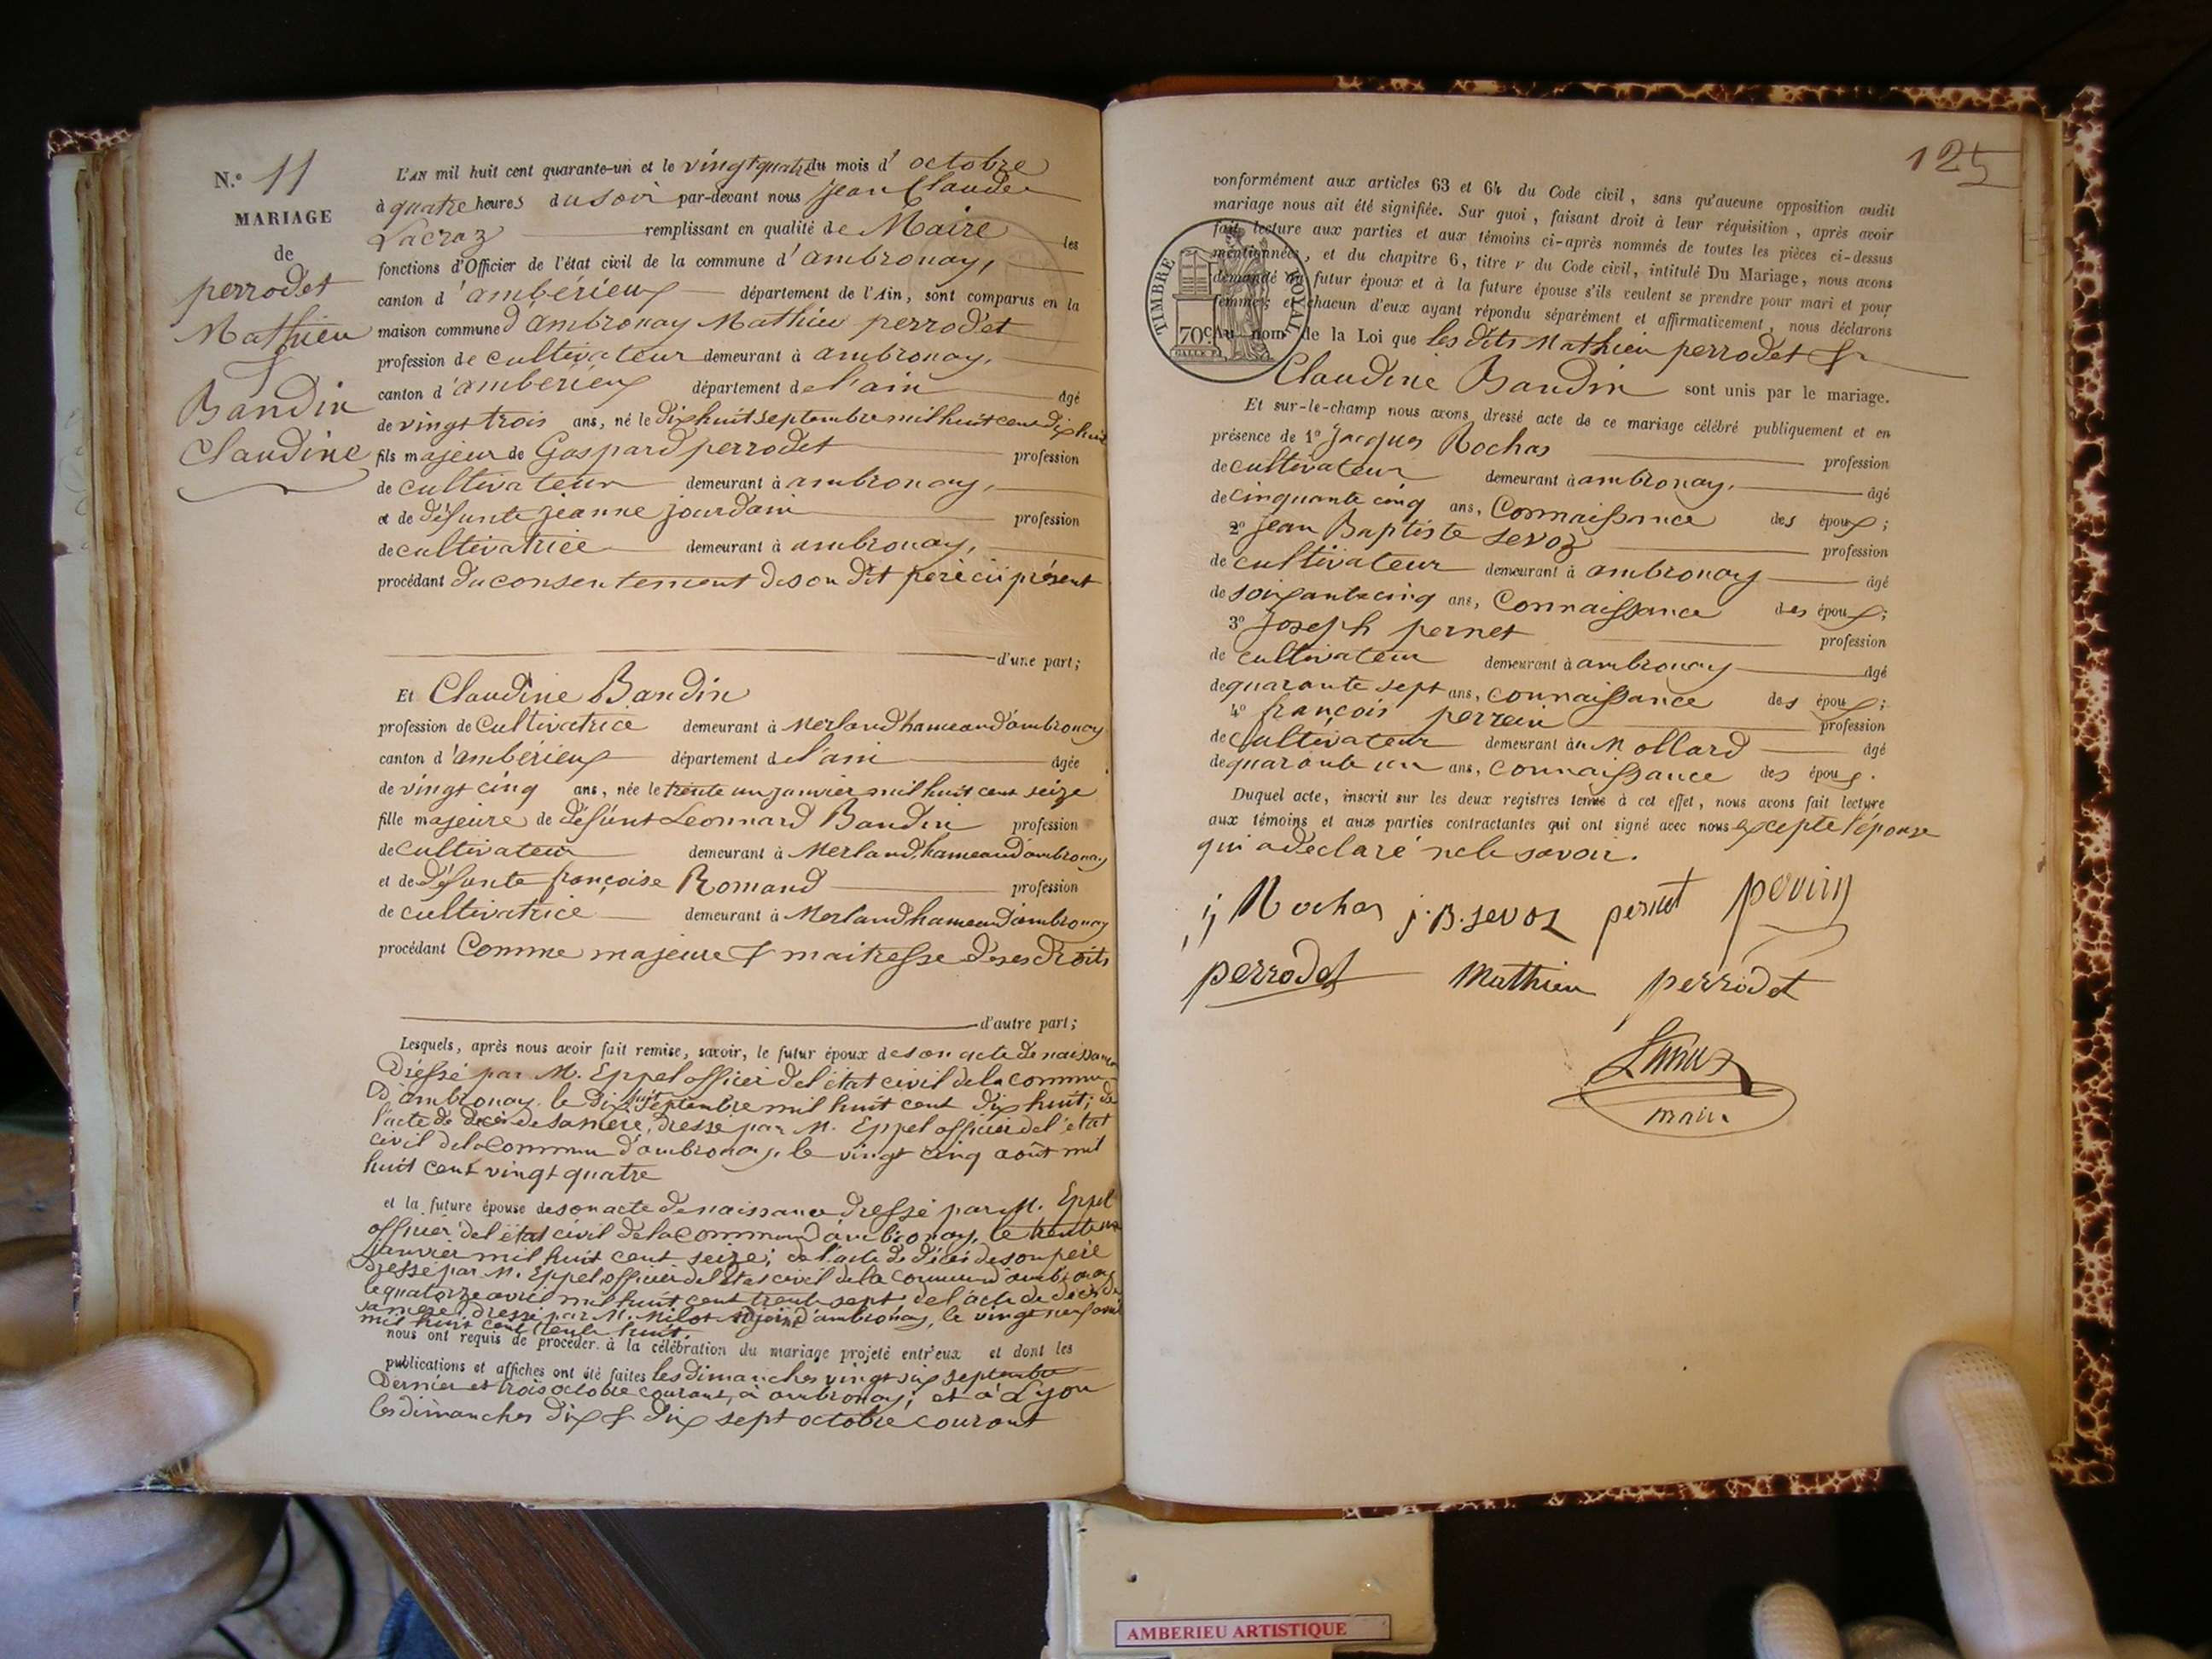 N.° 11
MARIAGE
de
perrodet
Mathieu
&
Bandin
Claudine
L'AN mil huit cent quarante-un et le vingt quatre du mois d' octobre
à quatre heures du soir par-devant nous Jean Claude
Lacroz remplissant en qualité de Maire les
fonctions d'Officier de l'état civil de la commune d' ambronay,
canton d' ambérieux département de l'Ain, sont comparus en la
maison commune d'ambronay Mathieu perrodet
profession de cultivateur demeurant à ambronay,
canton d' ambérieux département de l'ain âgé
de vingt trois ans, né le dix huit septembre mil huit cent dix huit
fils majeur de Gaspard perrodet profession
de cultivateur demeurant à ambronay,
et de défunte jeanne jourdain profession
de cultivatrice demeurant à ambronay,
procédant du consentement de son dit père ici présent
d'une part;
Et Claudine Bandin
profession de Cultivatrice demeurant à Merland hameau d'ambronay
canton d' ambérieux département de l'ain âgée
de vingt cinq ans, née le trente un janvier mil huit cent seize
fille majeure de défunt Leonnard Bandin profession
de cultivateur demeurant à Merland, hameau d'ambronay
et de défunte françoise Romand profession
de cultivatrice demeurant à Merland hameau d'ambronay
procédant Comme majeure & maitresse de ses droits
d'autre part;
Lesquels, après nous avoir fait remise, savoir, le futur époux de son acte de naissance
dressé par M. Eppel officier de l'état civil de la commune
d'ambronay, le dix huit septembre mil huit cent dix huit; de
l'acte de décès de sa mère, dressé par M. Eppel officier de l'état
civil de la commune d'ambronay, le vingt cinq août mil
huit cent vingt quatre
et la future épouse de son acte de naissance dressé par M. Eppel
officier de l'état civil de la commune d'ambronay, le trente un
Janvier mil huit cent seize; de l'acte de décès de son père
dressé par M. Eppel officier de l'état civil de la commune d'ambronay
le quatorze avril mil huit cent trente sept de l'acte de décès de
sa mère, dressé par M. Milot adjoint d'ambronay, le vingt neuf avril
mil huit cent trente huit.
nous ont requis de procéder à la célébration du mariage projeté entr'eux et dont les
publications et affiches ont été faites les dimanches vingt six septembre
dernier et trois octobre courant, à ambronay; et à Lyon
les dimanches dix & dix sept octobre courant
125
conformément aux articles 63 et 64 du Code civil, sans qu'aucune opposition audit
mariage nous ait été signifiée. Sur quoi, faisant droit à leur réquisition, après avoir
fait lecture aux parties et aux témoins ci-après nommés de toutes les pièces ci-dessus
mentionnées, et du chapitre 6, titre v du Code civil, intitulé Du Mariage, nous avons
demandé au futur époux et à la future épouse s'ils veulent se prendre pour mari et pour
femme; et chacun d'eux ayant répondu séparément et affirmativement, nous déclarons
Au nom de la Loi que les dits Mathieu perrodet &
TIMBRE ROYAL
70c
Claudine Bandin sont unis par le mariage.
Et sur-le-champ nous avons dressé acte de ce mariage célébré publiquement et en
présence de 1° Jacques Rochas profession
de cultivateur demeurant à ambronay, âgé
de cinquante cinq ans, Connaissance des époux;
2° Jean Baptiste Sevoz profession
de cultivateur demeurant à ambronay âgé
de soixante cinq ans, Connaissance des époux;
3° Joseph pernet profession
de cultivateur demeurant à ambronay âgé
de quarante sept ans, connaissance des époux;
4° françois perrein profession
de cultivateur demeurant au Mollard âgé
de quarante un ans, connaissance des époux.
Duquel acte, inscrit sur les deux registres tenus à cet effet, nous avons fait lecture
aux témoins et aux parties contractantes qui ont signé avec nous excepté l'épouse
qui a déclaré ne le savoir.
j Rochas j. B. sevoz pernet
perrodet Mathieu perrodet
maire
AMBERIEU ARTISTIQUE